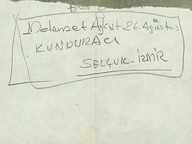 Mehmet Aykut 26. Ağustos
KUNDURACI
SELÇUK-İZMİR